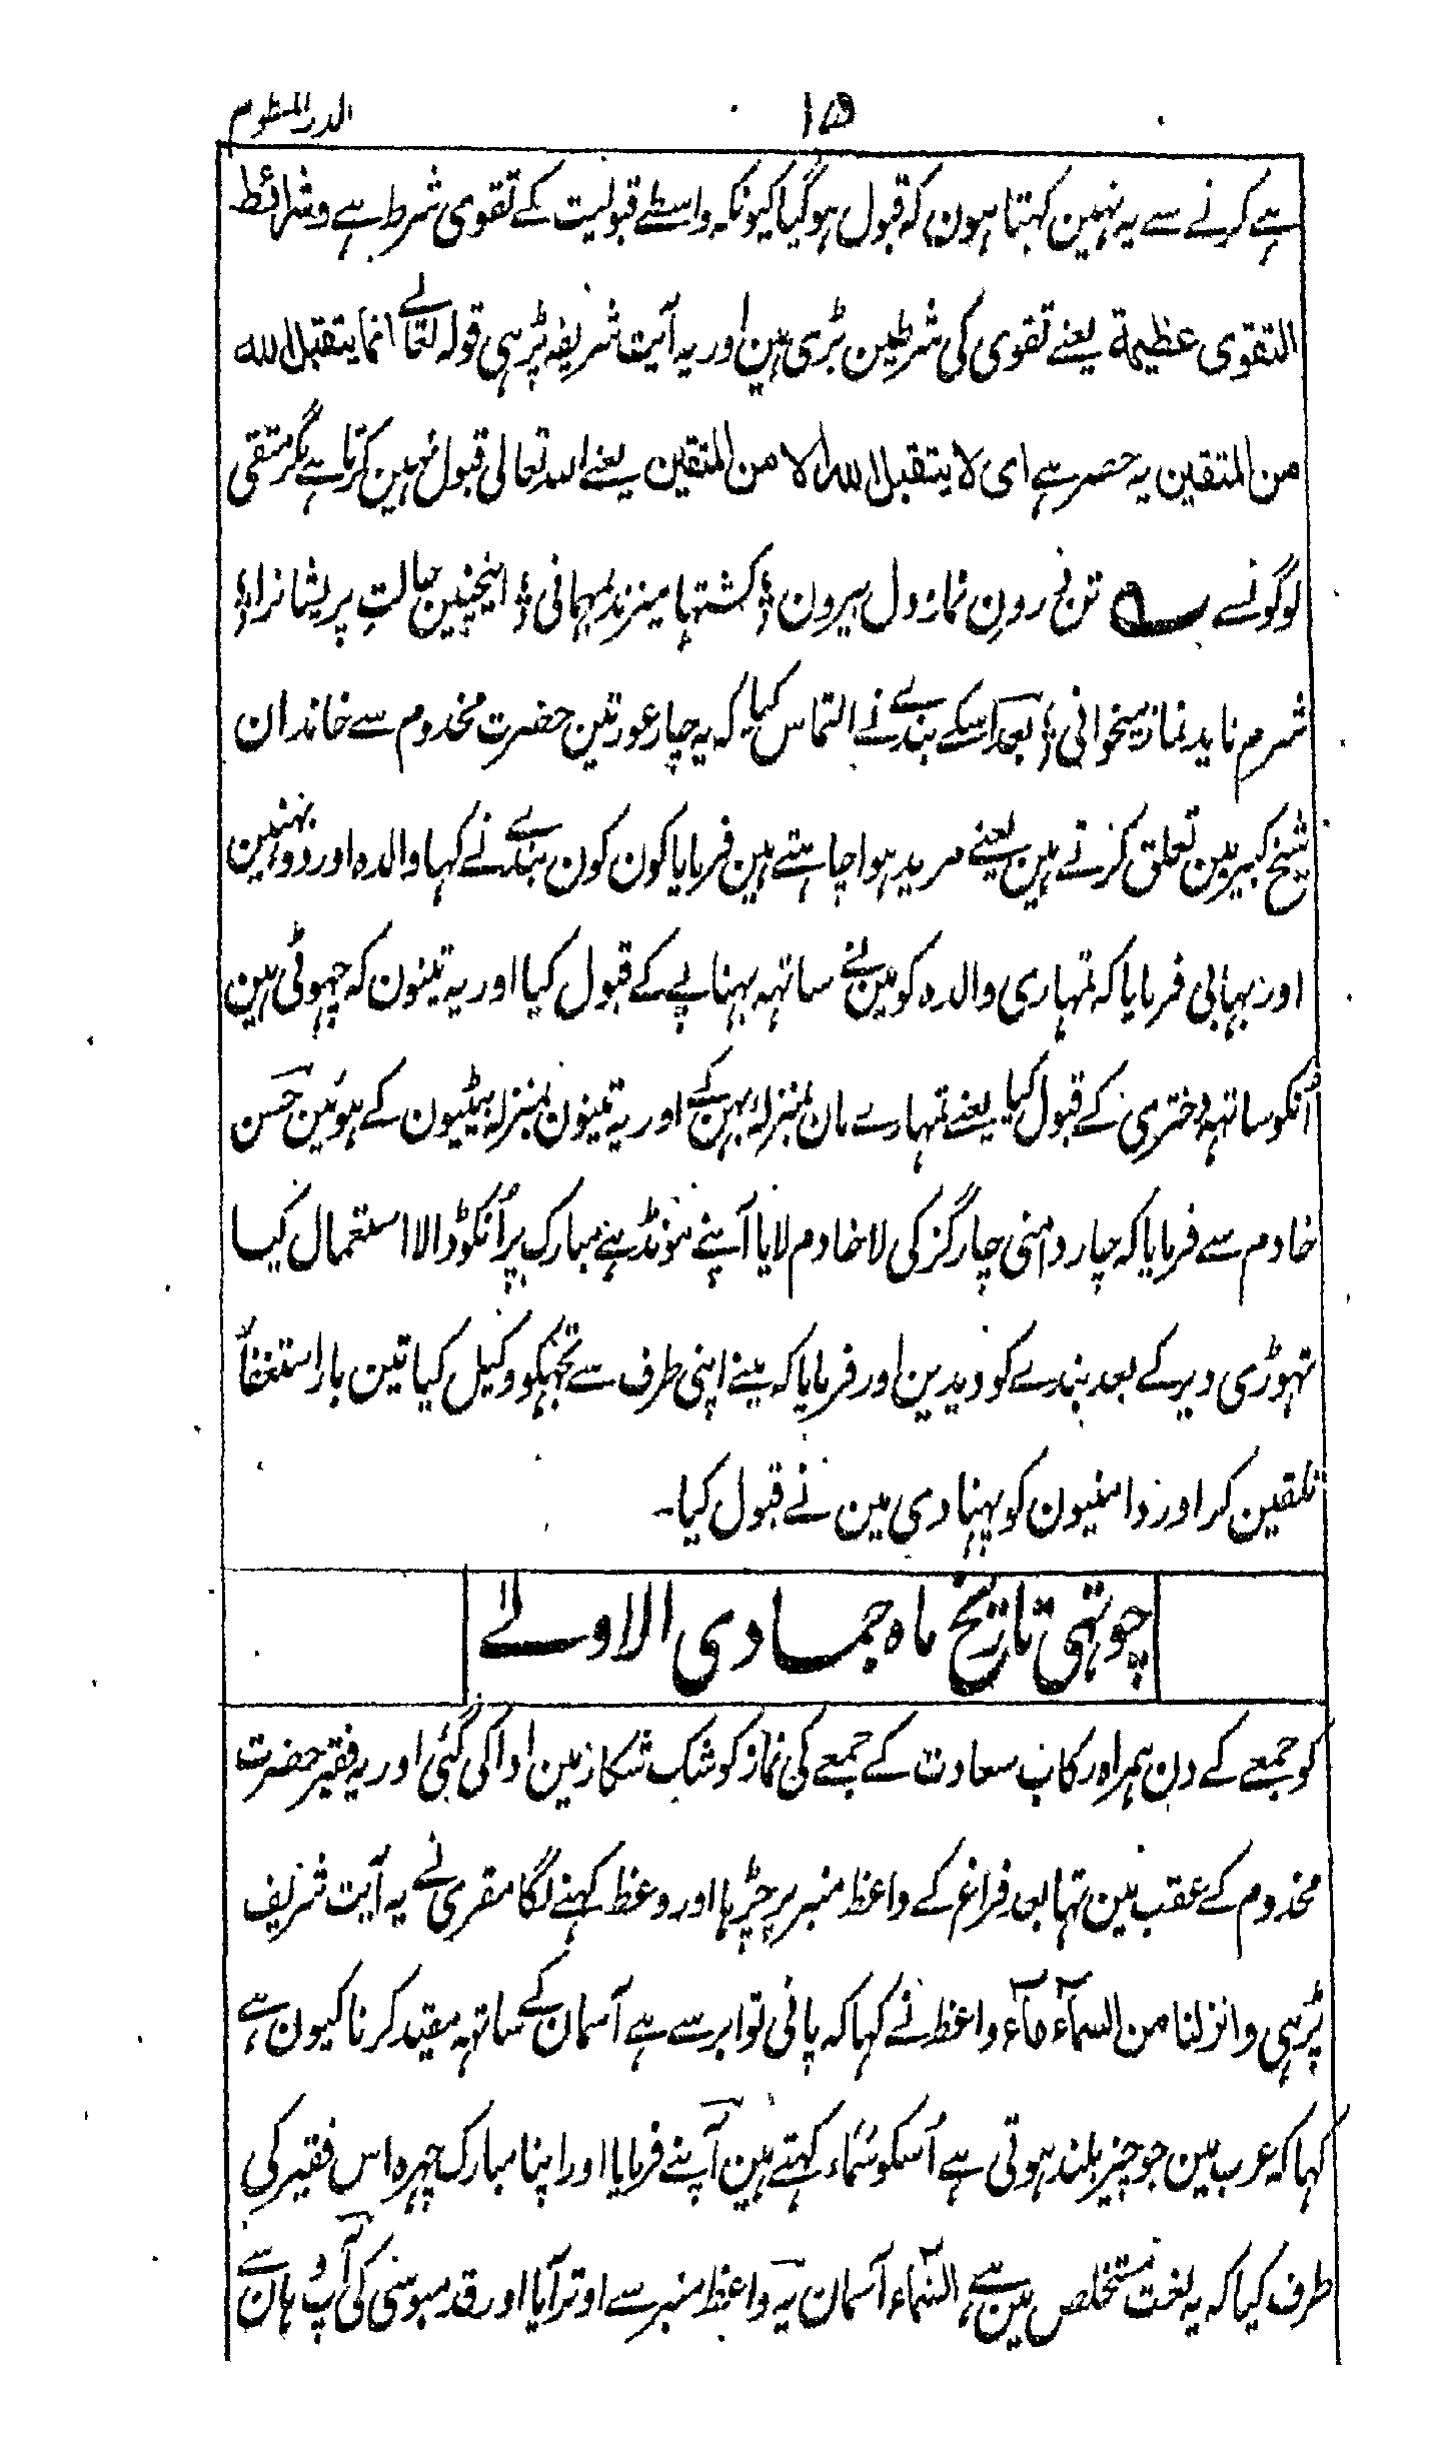 ۱۵ الدر المنظوم
ہے کرنے سے یہ نہین کہتا ہون کہ قبول ہو گیا کیونکہ واسطے قبولیت کے تقوی شرط ہے و شرائط
التقوی عظیمۃ یعنے تقوی کی شرطین بڑی ہین اور یہ آیت شریفہ پڑہی قولہ تعالے انما یتقبل اللہ
من المتقین یہ حصر ہے ای لا یتقبل اللہ الا من المتقین یعنے اللہ تعالی قبول نہین کرتا ہے مگر متقی
لوگونسے ؎ تن درون نماز دل بیرون ؛ کشتہا میزند بمہمانی ؛ اینچنین حالتِ پریشانرا ؛
شرم ناید نماز میخوانی ؛ بعد اسکے بندے نے التماس کیا کہ یہ چار عورتین حضرت مخدوم سے خاندان
شیخ کبیر مین تعلق کرتے ہین یعنے مرید ہوا چاہتے ہین فرمایا کون کون بندے نے کہا والدہ اور دو بہنین
اور بہابی فرمایا کہ تمہاری والدہ کو مین نے ساتہہ بہناپے کے قبول کیا اور یہ تینون کہ چہوٹی ہین
اُنکو ساتہہ دختری کے قبول کیا یعنے تمہارے مان بمنزلہ بہن کے اور یہ تینون بمنزلہ بیٹیون کے ہوئین حسن
خادم سے فرمایا کہ چار دامنی چار گز کی لا خادم لایا آپنے مونڈہے مبارک پر اُنکو ڈالا استعمال کیا
تہوڑی دیر کے بعد بندے کو دیدین اور فرمایا کہ مینے اپنی طرف سے تجہکو وکیل کیا تین بار استغفار
تلقین کر اور دامنیون کو پہنا دی مین نے قبول کیا۔
چوتہی تاریخ ماہ جمادی الاولے
کو جمعے کے دن ہمراہ رکاب سعادت کے جمعے کی نماز کوشک شکار مین ادا کی گئی اور یہ فقیر حضرت
مخدوم کے عقب مین تہا بعد فراغ کے واعظ منبر پر چڑہا اور وعظ کہنے لگا مقری نے یہ آیت شریف
پڑہی وانزلنا من السمآء مآء واعظ نے کہا کہ پانی تو ابر سے ہے آسمان کے ساتہہ مقید کرنا کیون ہے
کہا کہ عرب مین جو چیز بلند ہوتی ہے اُسکو سَمَاء کہتے ہین آپنے فرمایا اور اپنا مبارک چہرہ اس فقیر کی
طرف کیا کہ یہ لغت مستخلص مین ہے السمآء آسمان یہ واعظ منبر سے اوتر آیا اور قدمبوسی کی آپ وہان سے